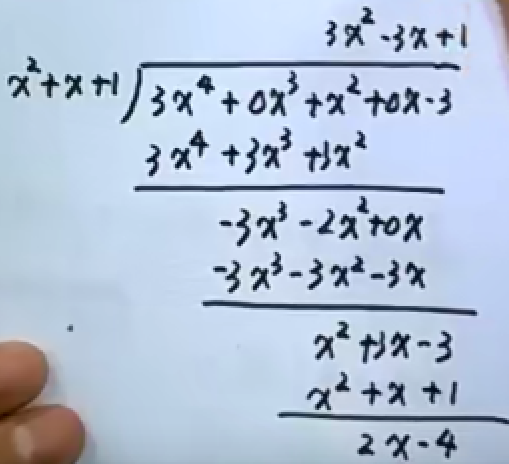 3x² -3x +1
x² + x + 1 ) 3x⁴ + 0x³ + x² + 0x - 3
3x⁴ + 3x³ + 3x²
-3x³ - 2x² + 0x
-3x³ - 3x² - 3x
x² + 3x - 3
x² + x + 1
2x - 4